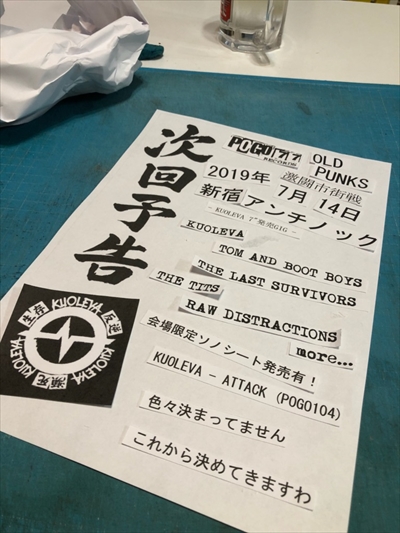 次回予告
POGO77
RECORDS
OLD
PUNKS
2019年
激闘市街戦
7月 14日
新宿アンチノック
- KUOLEVA 7"発売GIG -
KUOLEVA
TOM AND BOOT BOYS
THE LAST SURVIVORS
THE TITS
RAW DISTRACTIONS
more...
会場限定ソノシート発売有！
KUOLEVA - ATTACK (POGO104)
色々決まってません
これから決めてきますわ
生存 KUOLEVA 反逆 KUOLEVA KUOLEVA